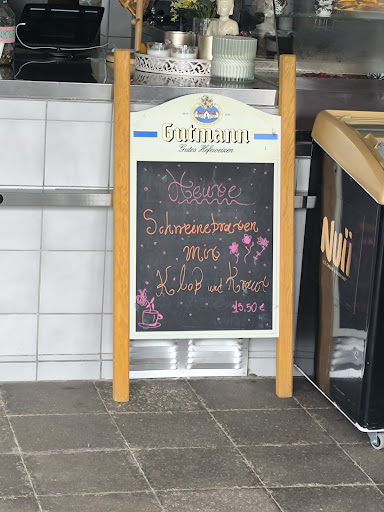 Gutmann
Gutes Hefeweizen
Heute
Schweinebraten
mit
Kloß und Kraut
15.50 €
Nuii